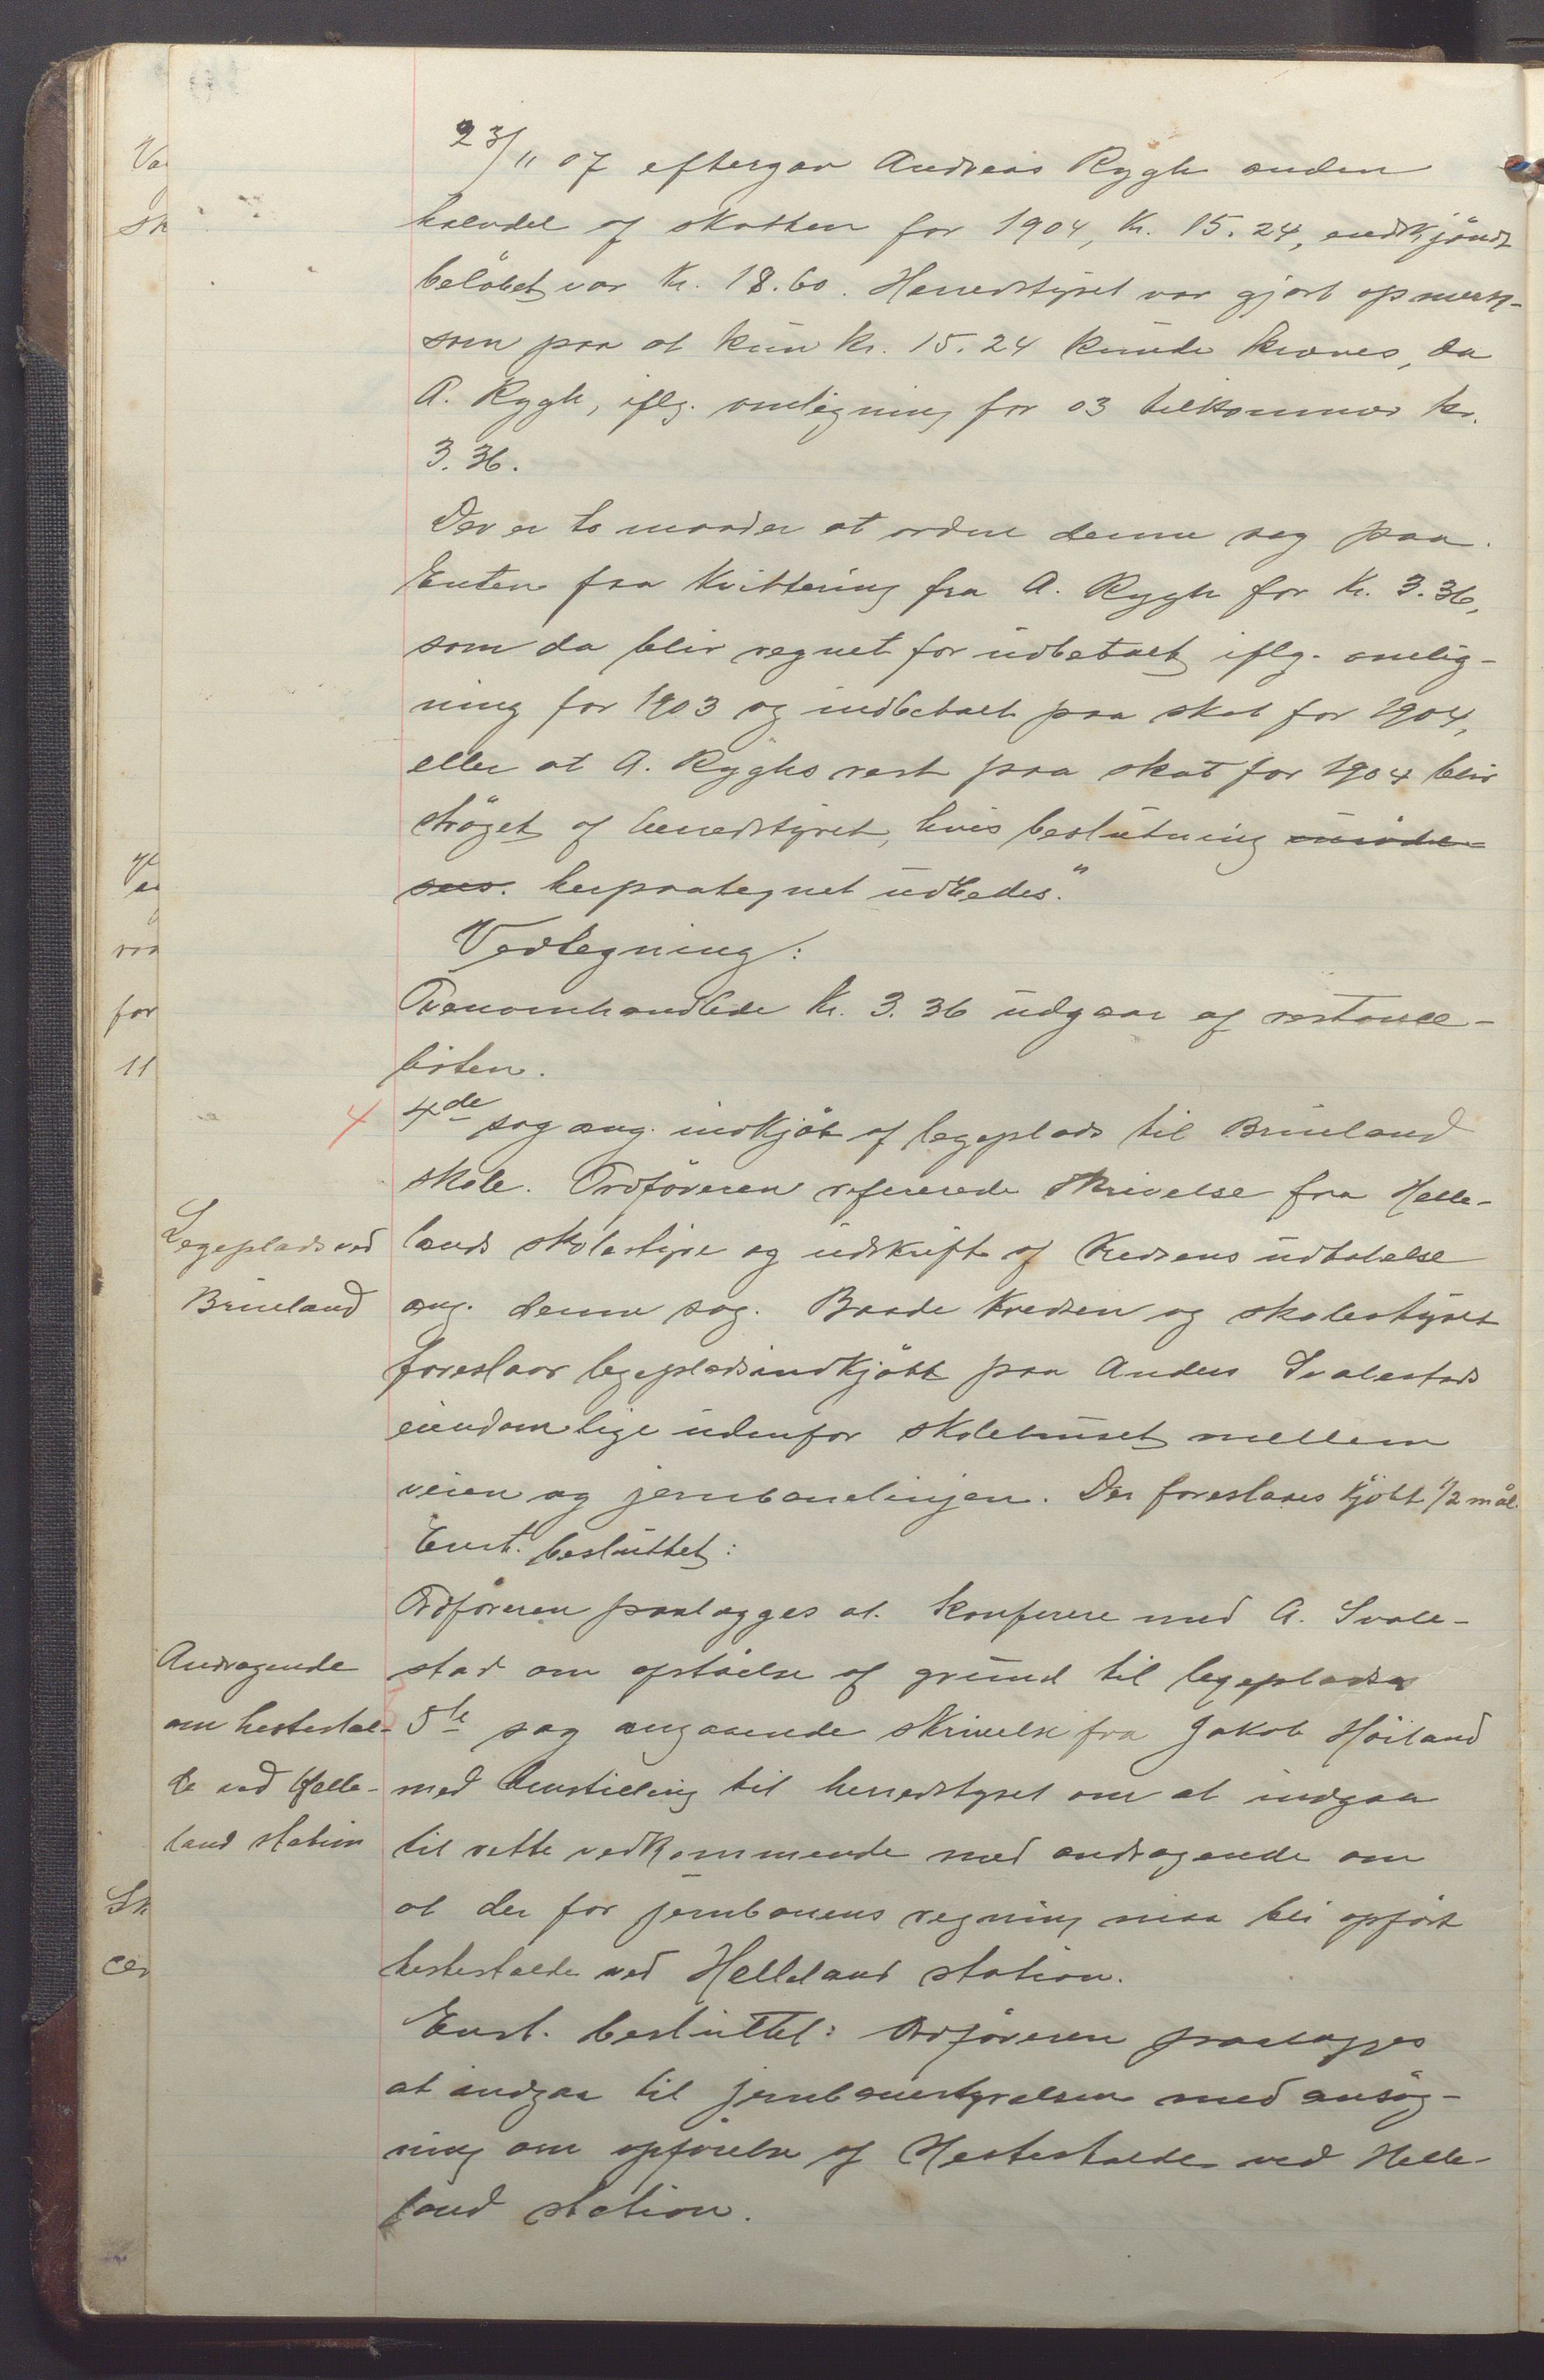 23/11 07 eftergav Andreas Rygh anden
halvdel af skatten for 1904, Kr. 15.24, endskjöndt
belöbet var Kr. 18.60. Herredstyret var gjort opmerk-
som paa at kun Kr. 15.24 kunde kræves, da
A. Rygh, iflg. omligning for 03 tilkommer kr.
3.36.
Der er to maader at ordne denne sag paa.
Enten faa Kvittering fra A. Rygh for Kr. 3.36,
som da blir regnet for udbetalt iflg. omlig-
ning for 1903 og indbetalt paa skat for 1904,
eller at A. Ryghs rest paa skat for 1904 blir
ströget af herredstyret, hvis beslutning
herpaategnet udbedes."
Vedtegning:
Ovenomhandlede Kr. 3.36 udgaar af restance-
listen.
4 4de sag ang. indkjöb af legeplads til Brueland
skole. Ordföreren refererede skrivelse fra Helle-
Legeplads ved lands skolestyre og udskrift af Kredsens udtalelse
Brueland ang. denne sag. Baade Kredsen og skolestyret
foreslaar legeplads indkjöbt paa Anders Svalestads
eiendom lige udenfor skolehuset mellem
veien og jernbanelinjen. Der foreslaaes kjöbt 1/2 mål.
Enst. besluttet:
Ordföreren paalægges at konferere med A. Svale-
Andragende stad om afståelse af grund til legeplads
om hestestal- 5te sag angaaende skrivelse fra Jakob Höiland
de ved Helle- med henstilling til herredstyret om at indgaa
land station til rette vedkommende med andragende om
at der for jernbanens regning maa bli opfört
hestestalde ved Helleland station.
Enst. besluttet: Ordföreren paalægges
at indgaa til jernbanestyrelsen med ansög-
ning om opförelse af Hestestalde ved Helle-
land station.